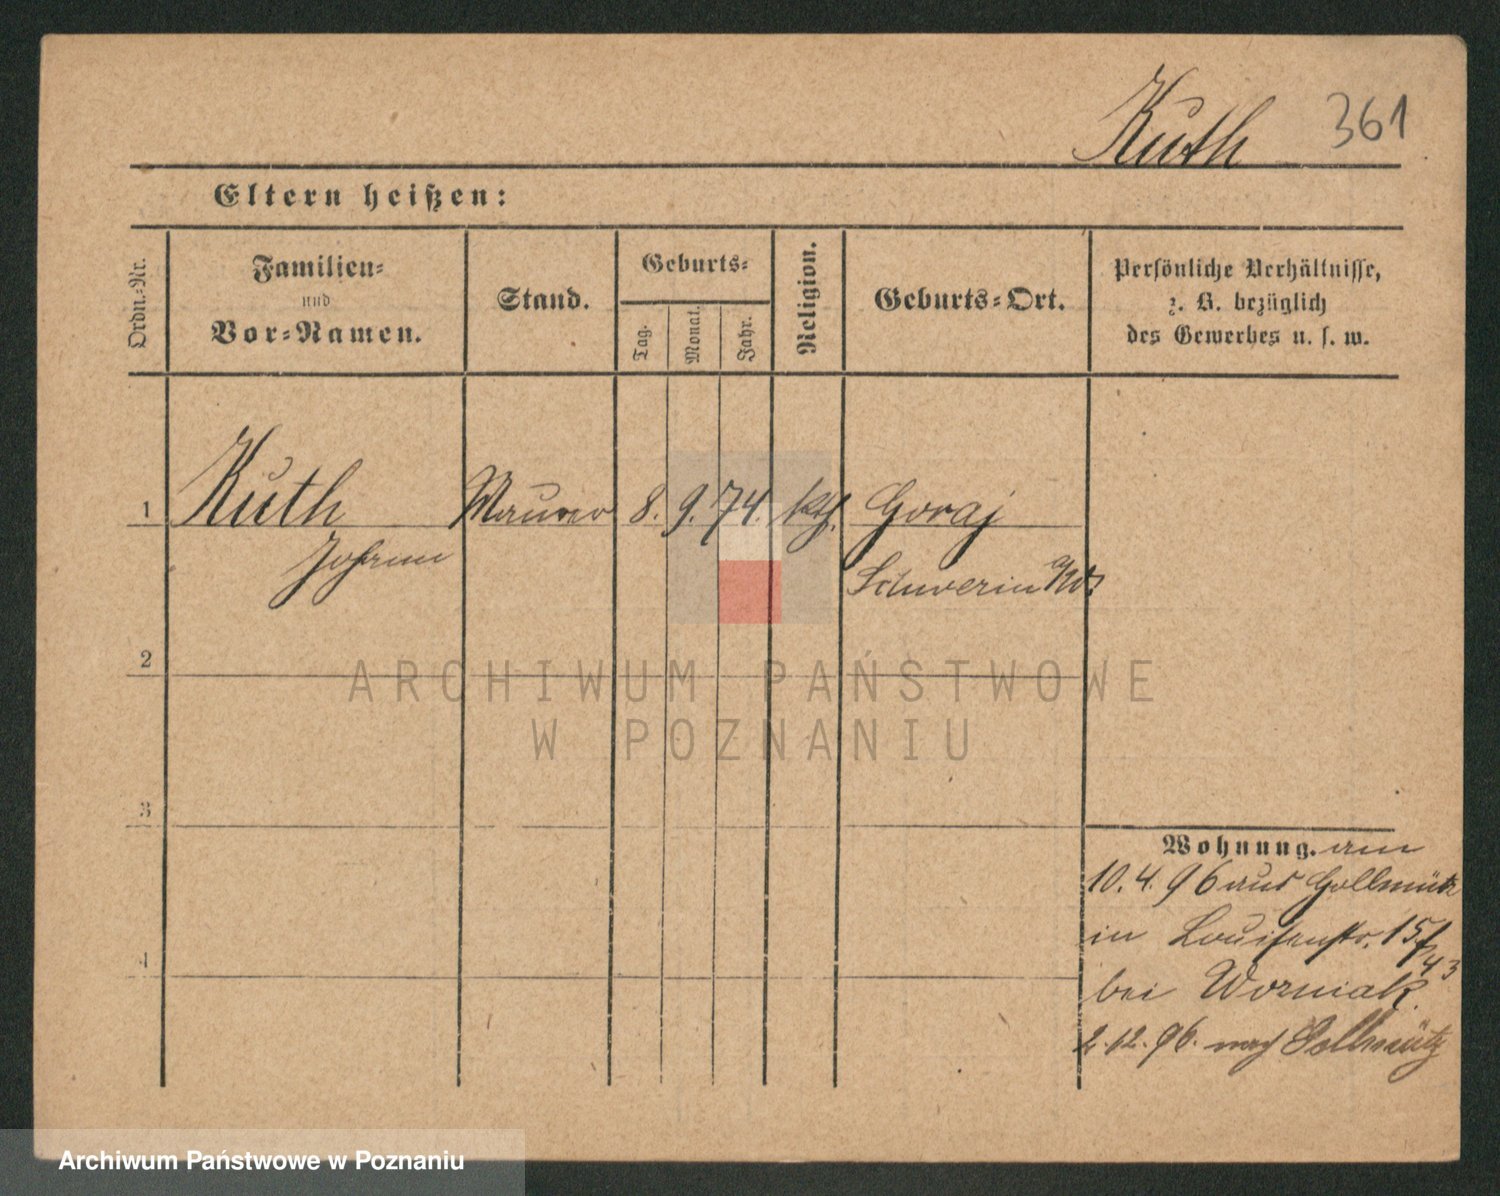 Kuth 361
Eltern heißen:
Ordn.-Nr.
Familien-
und
Vor-Namen.
Stand.
Geburts-
Tag.
Monat.
Jahr.
Religion.
Geburts-Ort.
Persönliche Verhältnisse,
z. B. bezüglich
des Gewerbes u. s. w.
1 Kuth Maurer 8. 9. 74. kth. Goraj
Johann Schwerin
2
ARCHIWUM PAŃSTWOWE
W POZNANIU
3
Wohnung. am
10. 4. 96 aus Gollmütz
in Louisenstr. 15/
43
4
bei Worniak
2.12.96. nach Gollmütz
Archiwum Państwowe w Poznaniu